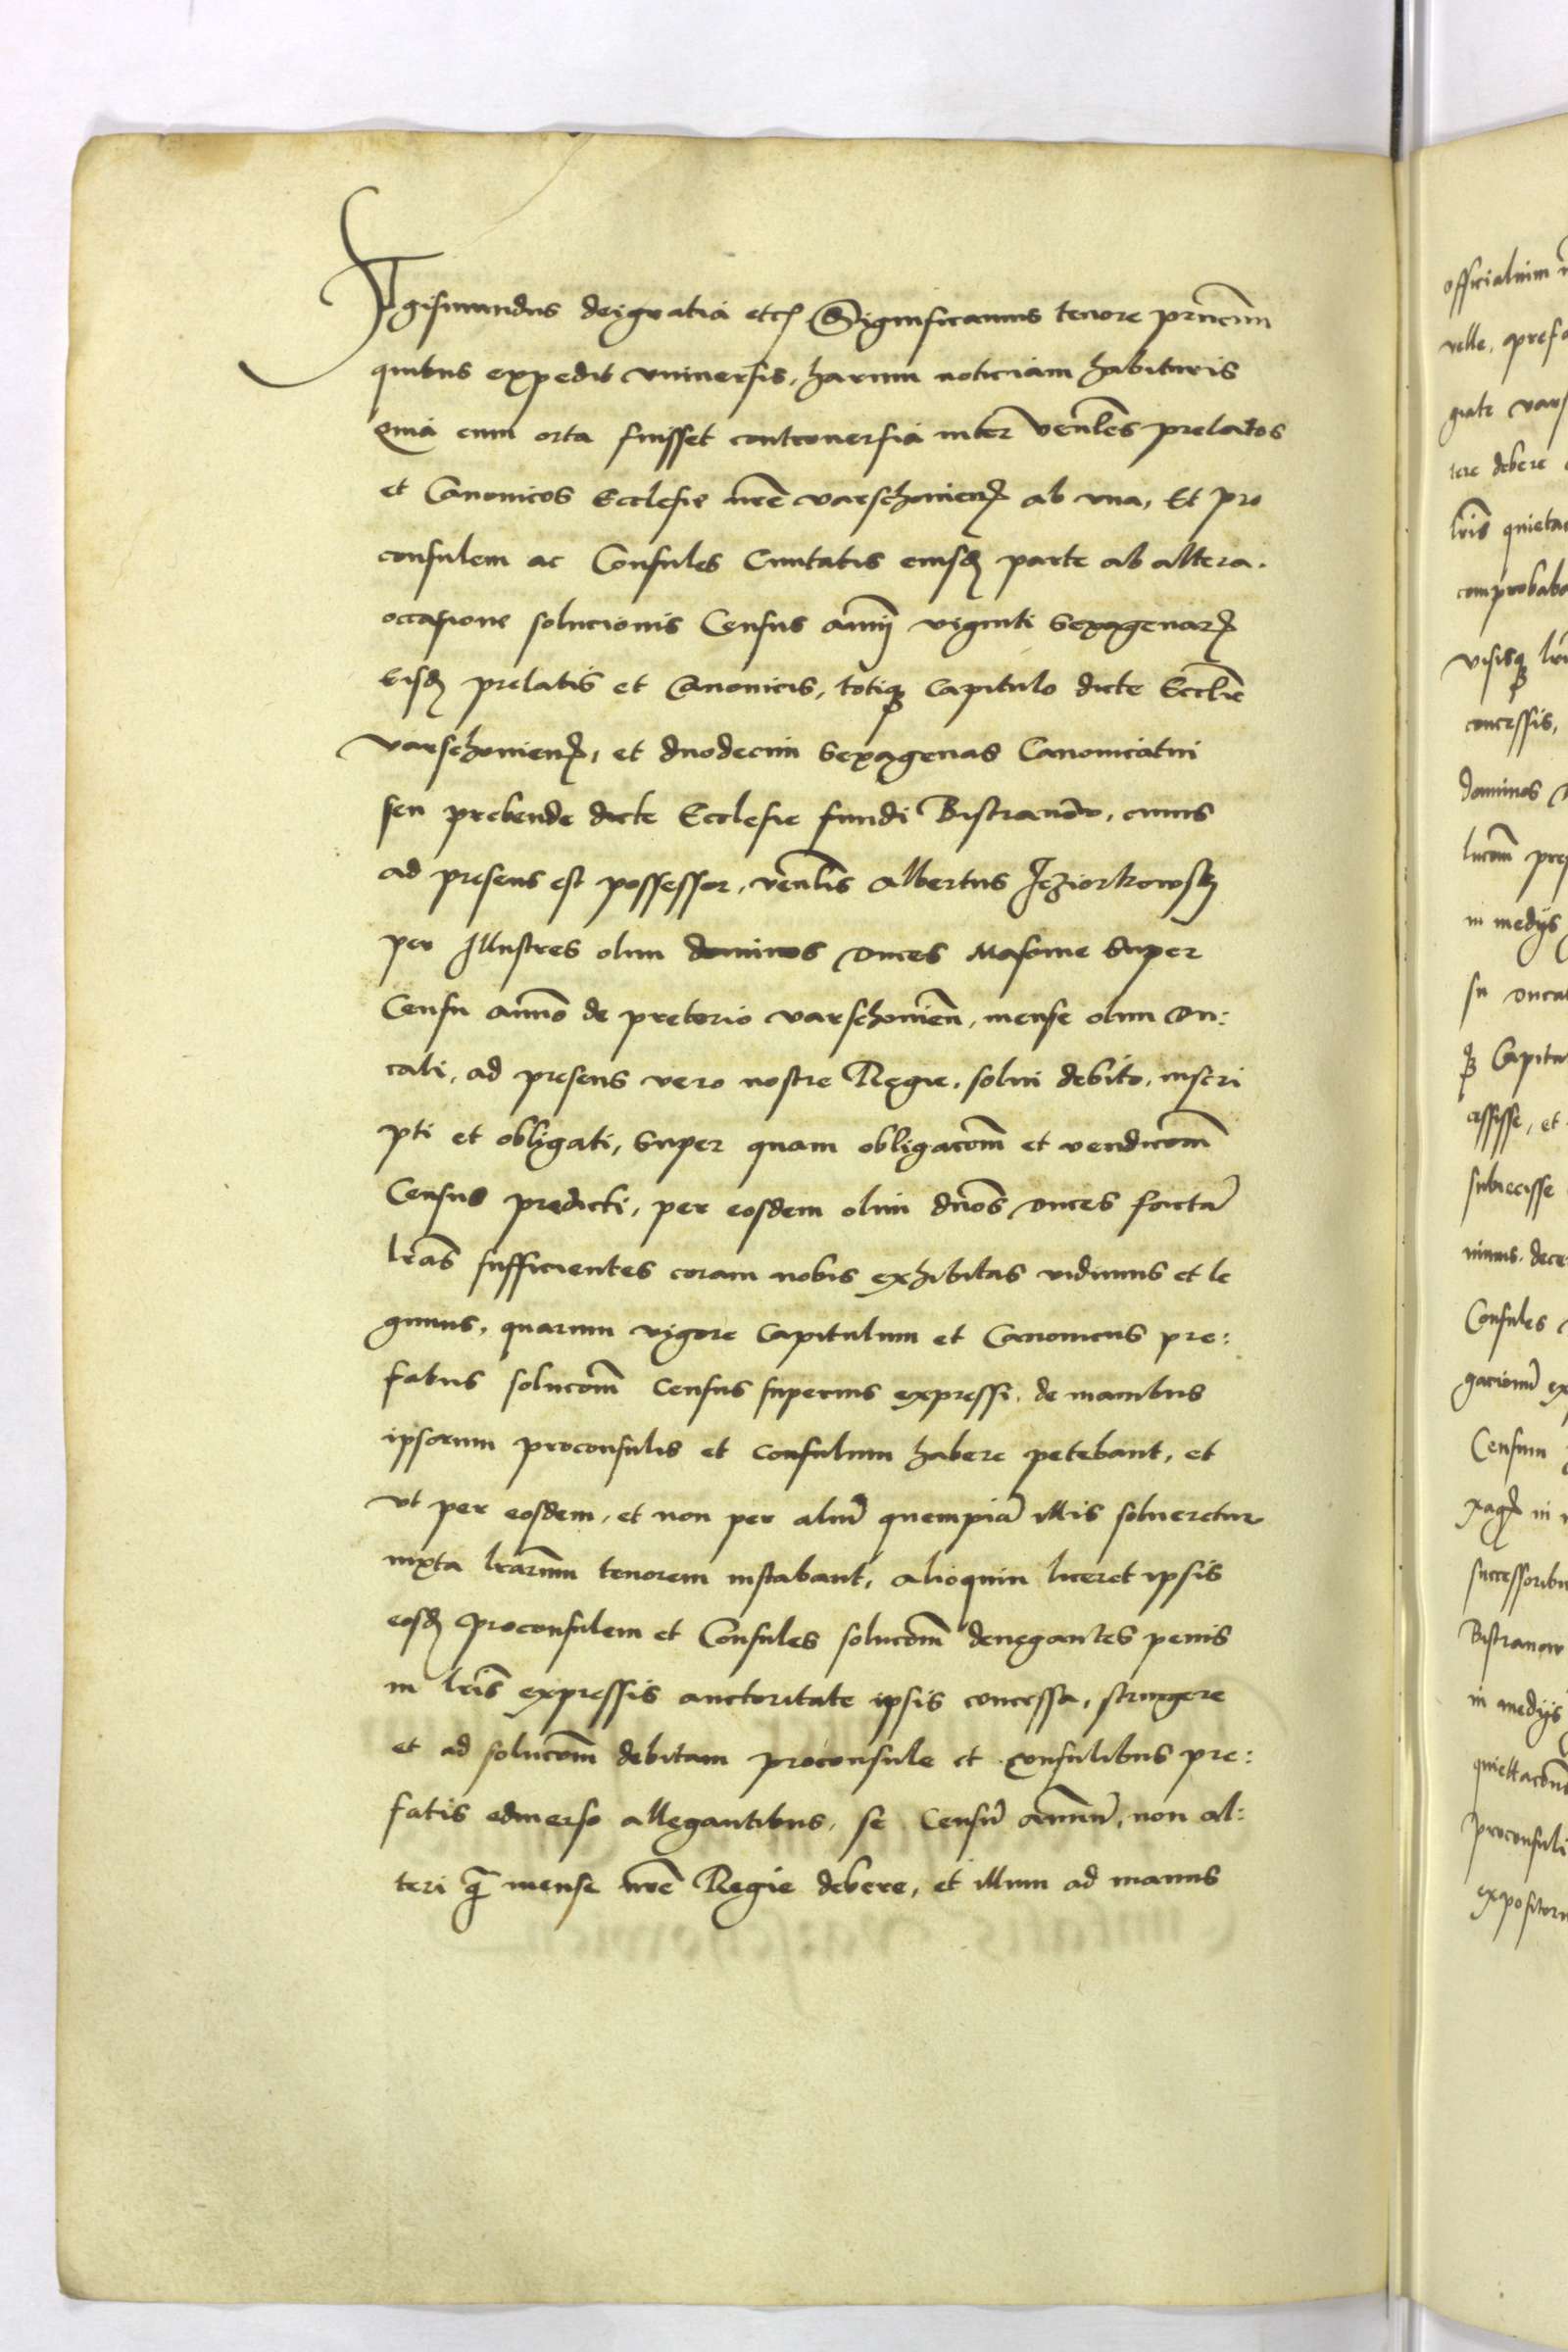 Sigismundus dei gratia etc Significamus tenore prncium
quibus expedit vniuersis, harum noticiam habituris
Quia cum orta fuisset controuersia inter venles prelatos
et Canonicos Ecclesie nre varschouien ab vna, Et pro
consulem ac Consules Ciuitatis eiusd parte ab altera.
occasione solucionis Census annui viginti sexagenar
eisd prelatis et Canonicis, totiq Capitulo dicte Ecclie
varschouien, et duodecim sexagenas Canonicatui
seu prebende dicte Ecclesie fundi Bistranow, cuius
ad presens est possessor, venlis Albertus Jeziorkowsky
per Illustres olim dominos duces Masouie super
Censu annuo de pretorio varschouien, mense olim Du:
cali, ad presens vero nostre Regie, solui debito, inscri
pti et obligati, super quam obligacom et vendicom
Census predicti, per eosdem olim dnos duces facta
lras sufficientes coram nobis exhibitas vidimus et le
gimus, quarum vigore Capitulum et Canonicus pre:
fatus solucom census superius expressi, de manibus
ipsorum proconsulis et consulum habere petebant, et
vt per eosdem, et non per aliu quempia illis solueretur
iuxta lrarum tenorem instabant, alioquin liceret ipsis
eosd Proconsulem et Consules solucom denegantes penis
in lris expressis auctoritate ipsis concessa, stringere
et ad solucom debitam proconsule et consulibus pre:
fatis eduerso allegantibus, se Censu annuu, non al:
teri q mense nre Regie debere, et illum ad manus
officialium
velle, prefa
giate vars
tere debere
lris quieta
comprobaba
visisq lri
concessis,
dominos
lucom pre
in medijs
su duca
q Capitu
cessisse, et
subiecisse
nimus. dece
Consules
gacionu ex
Censum
xag in
successoribu
Bistranow
in medijs
quiettacon
proconsuli
expositoru